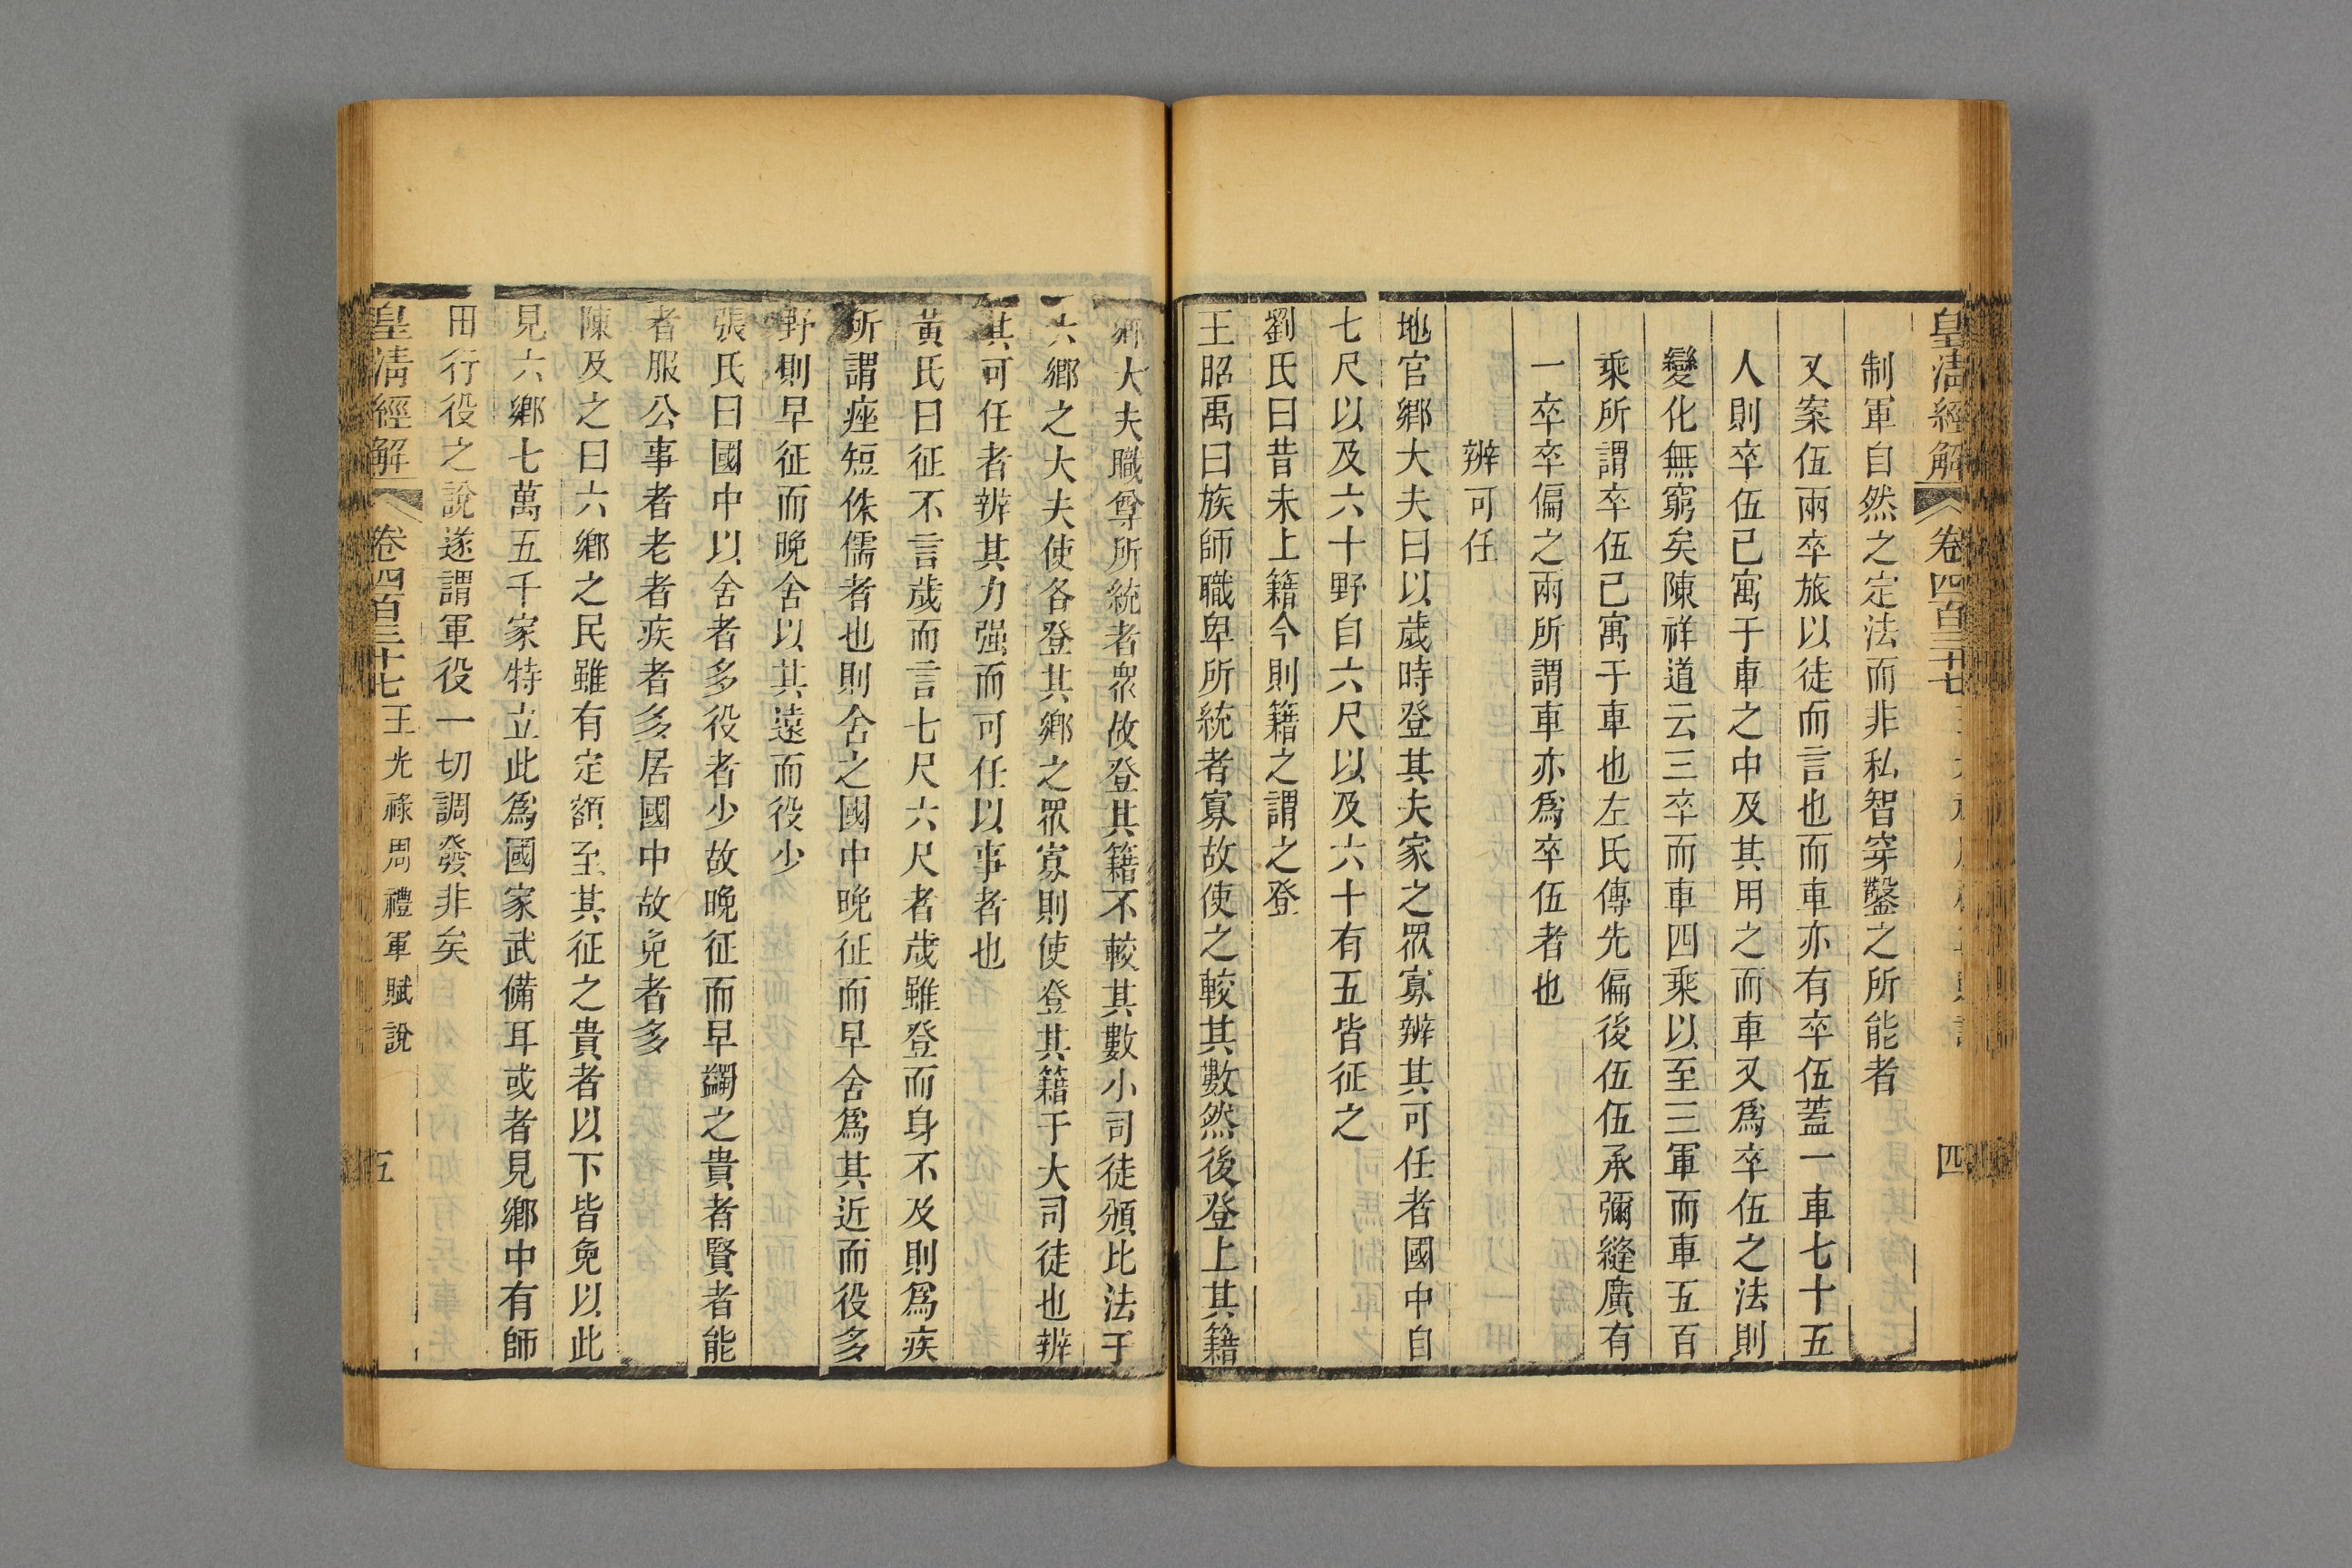 皇清經解 卷四百三十七 四
制軍自然之定法而非私智穿鑿之所能者
又案伍兩卒旅以徒而言也而車亦有卒伍蓋一車七十五
人則卒伍已寓于車之中及其用之而車又爲卒伍之法則
變化無窮矣陳祥道云三卒而車四乘以至三軍而車五百
乘所謂卒伍已寓于車也左氏傳先偏後伍伍承彌縫廣有
一卒卒偏之兩所謂車亦爲卒伍者也
辨可任
地官鄉大夫曰以歲時登其夫家之眾寡辨其可任者國中自
七尺以及六十野自六尺以及六十有五皆征之
劉氏曰昔未上籍今則籍之謂之登
王昭禹曰族師職卑所統者寡故使之較其數然後登上其籍
鄉大夫職尊所統者眾故登其籍不較其數小司徒頒比法于
六鄉之大夫使各登其鄉之眾寡則使登其籍于大司徒也辨
其可任者辨其力强而可任以事者也
黃氏曰征不言歲而言七尺六尺者歲雖登而身不及則爲疾
所謂痤短侏儒者也則舍之國中晚征而早舍爲其近而役多
野則早征而晚舍以其遠而役少
張氏曰國中以舍者多役者少故晚征而早蠲之貴者賢者能
者服公事者老者疾者多居國中故免者多
陳及之曰六鄉之民雖有定額至其征之貴者以下皆免以此
見六鄉七萬五千家特立此爲國家武備耳或者見鄉中有師
田行役之說遂謂軍役一切調發非矣
皇清經解 卷四百三十七 王光祿周禮軍賦說 五